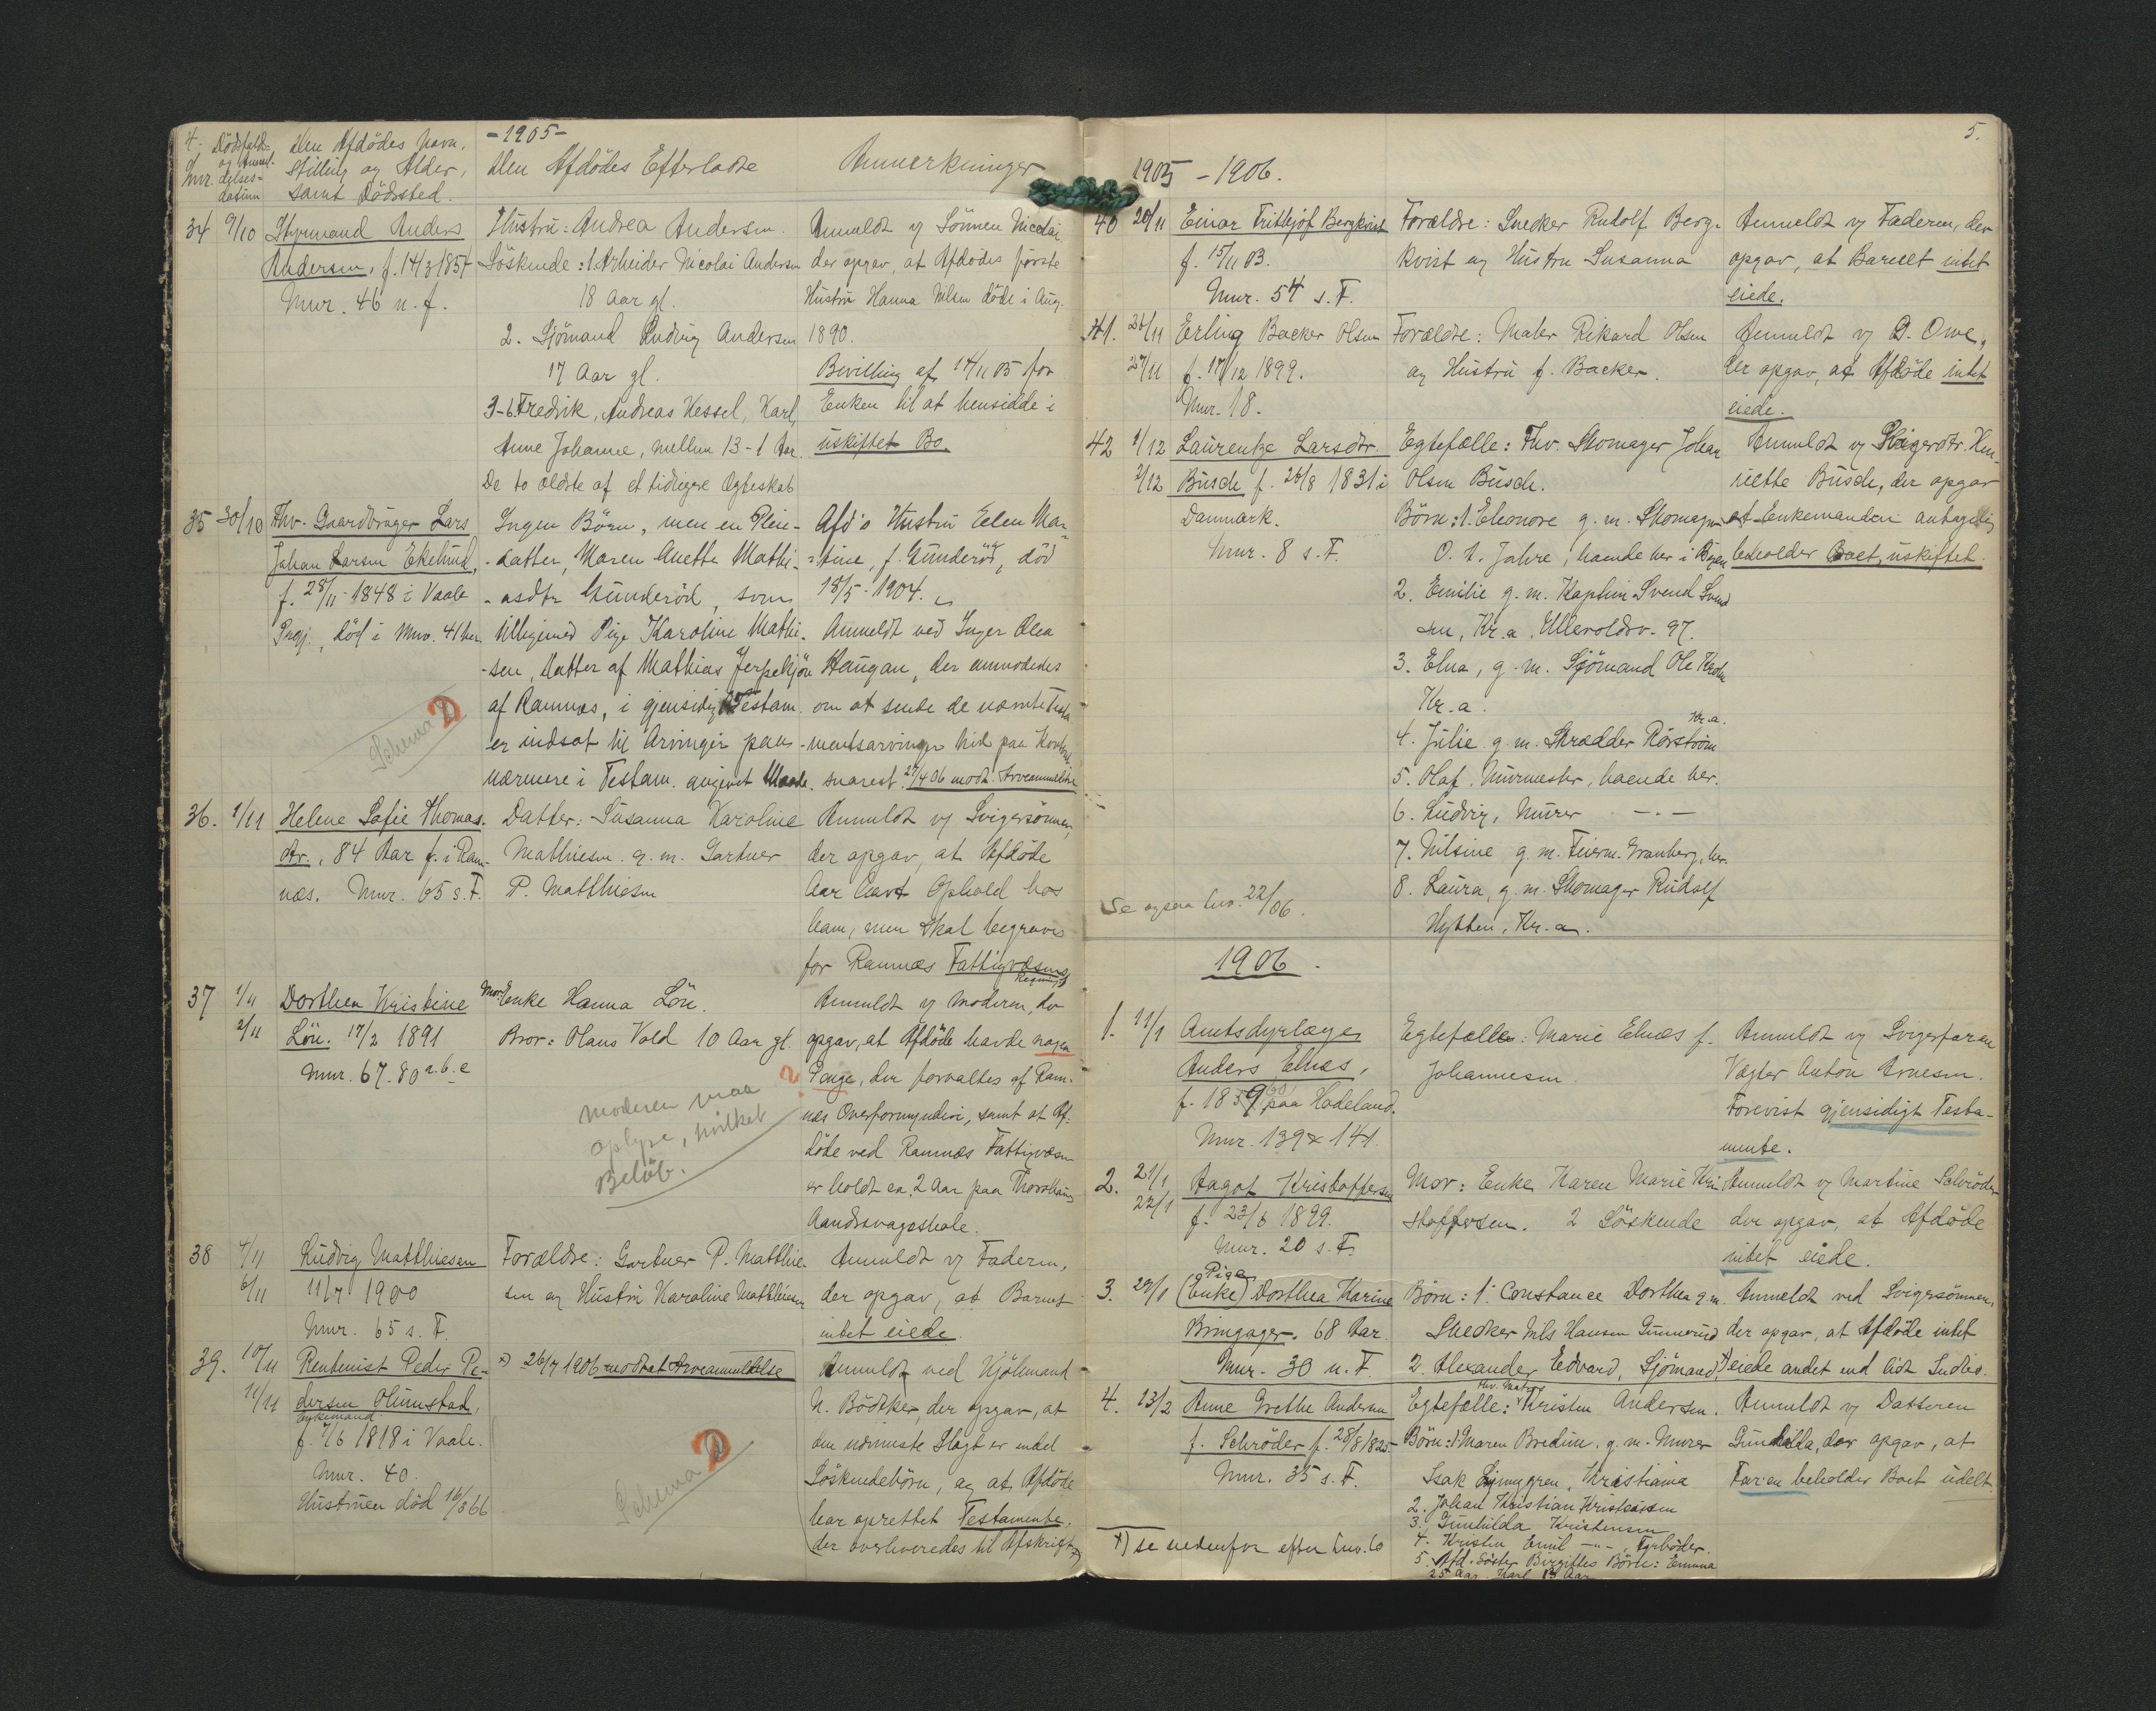 4.
- 1905 -
Nur.
Dödsfalds- og Anmel- delses- datum
Den Afdödes Navn,
Stilling og Alder,
samt Dödssted.
Den Afdödes Efterladte
Anmerkninger
34 9/10 Styrmand Anders
Andersen, f. 14/3 1854
Mnr. 46 n. f.
Hustru: Andrea Andersen.
Söskende: 1. Arbeider Nicolai Andersen
18 Aar gl.
2. Sjömand Ludvig Andersen
17 Aar gl.
3-6. Fredrik, Andreas Kessel, Karl,
Anne Johanne, mellem 13-1 Aar.
De to ældste af et tidligere Ægteskab
Anmeldt v/ Sönnen Nicolai,
der opgav, at Afdödes förste
Hustru Hanna Nilsen döde i Aug.
1890.
Bevilling af 14/11 05 for
Enken til at hensidde i
uskiftet Bo.
35 30/10 Fhv. Gaardbruger Lars
Johan Larsen Ekelund,
f. 28/11 - 1848 i Vaale
Prgj., död i Mnr. 41 her
Schema D
Ingen Börn, men en Pleie-
-datter, Maren Anette Mathi-
-asdtr Gunderöd, som
tilligemed Pige Karoline Mathi-
-sen, Datter af Mathias Jerpekjön
af Ramnes, i gjensidig Testam.
er indsat til Arvinger paa
nærmere i Testam. angivet Maade.
Afd's Hustru Eelen Mar-
-tine, f. Gunderöd, död
18/5 - 1904.
Anmeldt ved Inger Olea
Haugan, der anmodedes
om at sende de nævnte Testa
-mentsarvinger hid paa Kontoret
snarest. 27/4 06 modt. Arveanmeldelse
36. 1/11 Helene Sofie Thomas-
dtr., 84 Aar f. i Ram-
næs. Mnr. 65 s. F.
Datter: Susanna Karoline
Mathiesen g. m. Gartner
P. Matthiesen
Anmeldt v/ Svigersönnen,
der opgav, at Afdöde
har havt Ophold hos
ham, men skal begraves
for Ramnæs Fattigvæsens
Regning
37 1/11 Dorthea Kristine
2/11 Löu. 17/2 1891
Mnr. 67. 80 a. b. c
Mor: Enke Hanna Löu.
Bror: Olaus Vold 10 Aar gl.
Moderen maa
oplyse, hvilket
Belöb.
?
Anmeldt v/ Moderen, der
opgav, at Afdöde havde nogen
Penge, der forvaltes af Ram-
næs Overformynderi, samt at Af-
döde ved Ramnæs Fattigvæsen
er holdt ca. 2 Aar paa Thorshaug
Aandssvageskole.
38 4/11 Ludvig Matthiesen
6/11 11/7 1900
Mnr. 65 s. F.
Forældre: Gartner P. Matthie-
sen og Hustru Karoline Matthiesen
Anmeldt v/ Faderen,
der opgav, at Barnet
intet eiede.
39. 10/11 Rentenist Peder Pe-
11/11 dersen Olumstad,
Enkemand
f. 7/6 1818 i Vaale.
Mnr. 40.
Hustruen död 16/3 66
x) 26/7 1906 modtat Arveanmeldelse
Schema D
Anmeldt ved Kjöbmand
N. Bödtker, der opgav, at
den nærmeste Slægt er endel
Söskendebörn, og at Afdöde
har oprettet Testamente,
der overleveredes til Afskrift x)
5.
1905 - 1906.
40 20/11 Einar Frithjof Bergkvist
f. 15/11 03.
Mnr. 54 s. F.
Forældre: Snedker Rudolf Berg-
kvist og Hustru Susanna
Anmeldt v/ Faderen, der
opgav, at Barnet intet
eiede.
41. 26/11 Erling Backer Olsen
27/11 f. 17/12 1899.
Mnr. 18.
Forældre: Maler Rikard Olsen
og Hustru f. Backer.
Anmeldt v/ D. Owe,
der opgav, at Afdöde intet
eiede.
42 1/12 Laurentze Larsdtr.
2/12 Busch f. 26/8 1831 i
Danmark.
Mnr. 8 s. F.
Egtefælle: Fhv. Skomager Johan
Olsen Busch.
Börn: 1. Eleonore g. m. Skomager
O. T. Jahre, boende her i Byen
2. Emilie g. m. Kaptein Svend Svend
sen, Kr.a, Ullevoldsv. 97.
3. Elna, g. m. Sjömand Ole Krohn
Kr.a.
4. Julie g. m. Skrædder Rörström Kr.a.
5. Olaf, Murmester, boende her.
6. Ludvig, Murer -.-
7. Nilsine g. m. Feierm. Granberg, her.
8. Laura, g. m. Skomager Rudolf
Hytten, Kr.a.
Anmeldt v/ Svigerdtr. Hen-
riette Busch, der opgav
at Enkemanden antagelig
beholder Boet uskiftet.
Se ogsaa Lnr. 22/06.
1906.
1. 11/1 Amtsdyrlæge
Anders Elnæs,
f. 1859 paa Hadeland.
Mnr. 139 & 141.
Egtefælle: Marie Elnæs f.
Johannesen.
Anmeldt v/ Svigerfaren
Vægter Anton Arnesen.
Forevist gjensidigt Testa-
mente.
2. 21/1 Aagot Kristoffersen
22/1 f. 23/6 1899.
Mnr. 20 s. F.
Mor: Enke Karen Marie Kri-
stoffersen. 2 Söskende
Anmeldt v/ Martine Schröder
der opgav, at Afdöde
intet eiede.
3. 29/1 Pige
(Enke) Dorthea Karine
Bringager. 68 Aar
Mnr. 30 n. F.
Börn: 1. Constance Dorthea g. m.
Snedker Nils Hansen Gunnerud
2. Alexander Edvard, Sjömand x)
Anmeldt ved Svigersönnen,
der opgav, at Afdöde intet
eiede andet end lidt Indbo.
4. 13/2 Anne Grethe Andersen
f. Schröder f. 28/8 1825
Mnr. 35 s. F.
Egtefælle: Fhv. Matros Kristen Andersen.
Börn: 1. Maren Bredine, g. m. Murer
Isak Ljungren, Kristiania
2. Johan Kristian Kristensen
3. Gunhilda Kristensen
4. Kristen Emil -"-, Fyrböder.
5. Afd. Söster Birgittes Börn: Emma
25 Aar, Karl 19 Aar
Anmeldt v/ Datteren
Gunhilda, der opgav, at
Faren beholder Boet udelt.
x) se nedenfor efter Lnr. 60